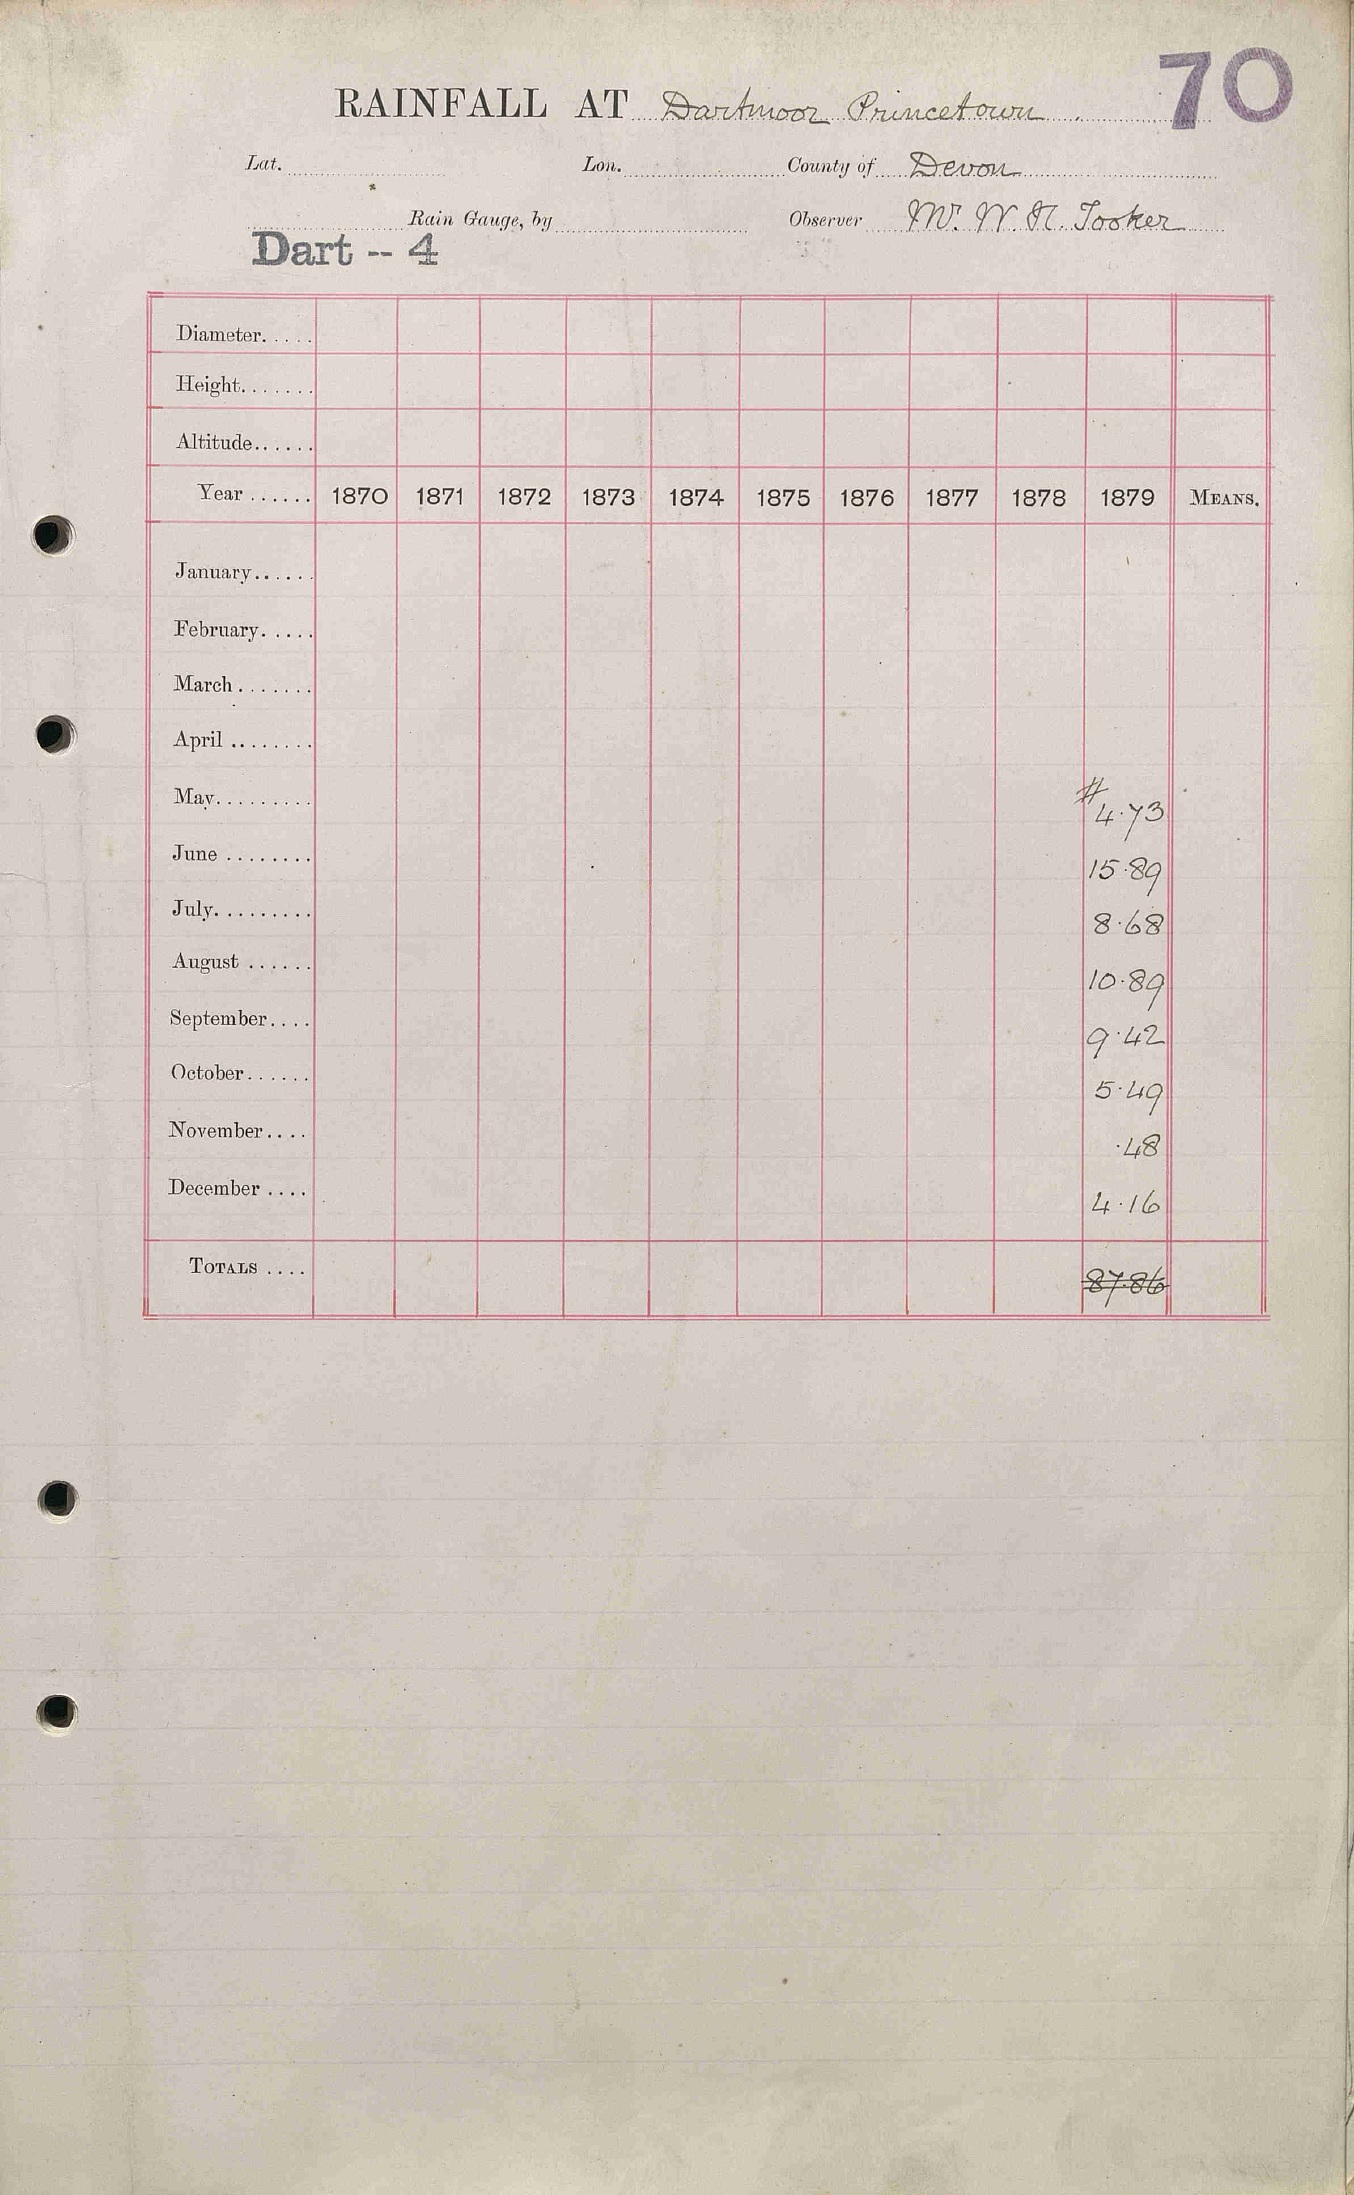 70
RAINFALL AT Dartmoor Princetown
Lat. Lon. County of Devon
Rain Gauge, by Observer Mr. W. R. Tooker
Dart -- 4
Diameter.....
Height.......
Altitude......
Year ...... 1870 1871 1872 1873 1874 1875 1876 1877 1878 1879 MEANS.
January......
February.....
March.......
April ........
May......... # 4.73
June ........ 15.89
July......... 8.68
August ...... 10.89
September.... 9.42
October...... 5.49
November.... .48
December .... 4.16
TOTALS .... 87.86